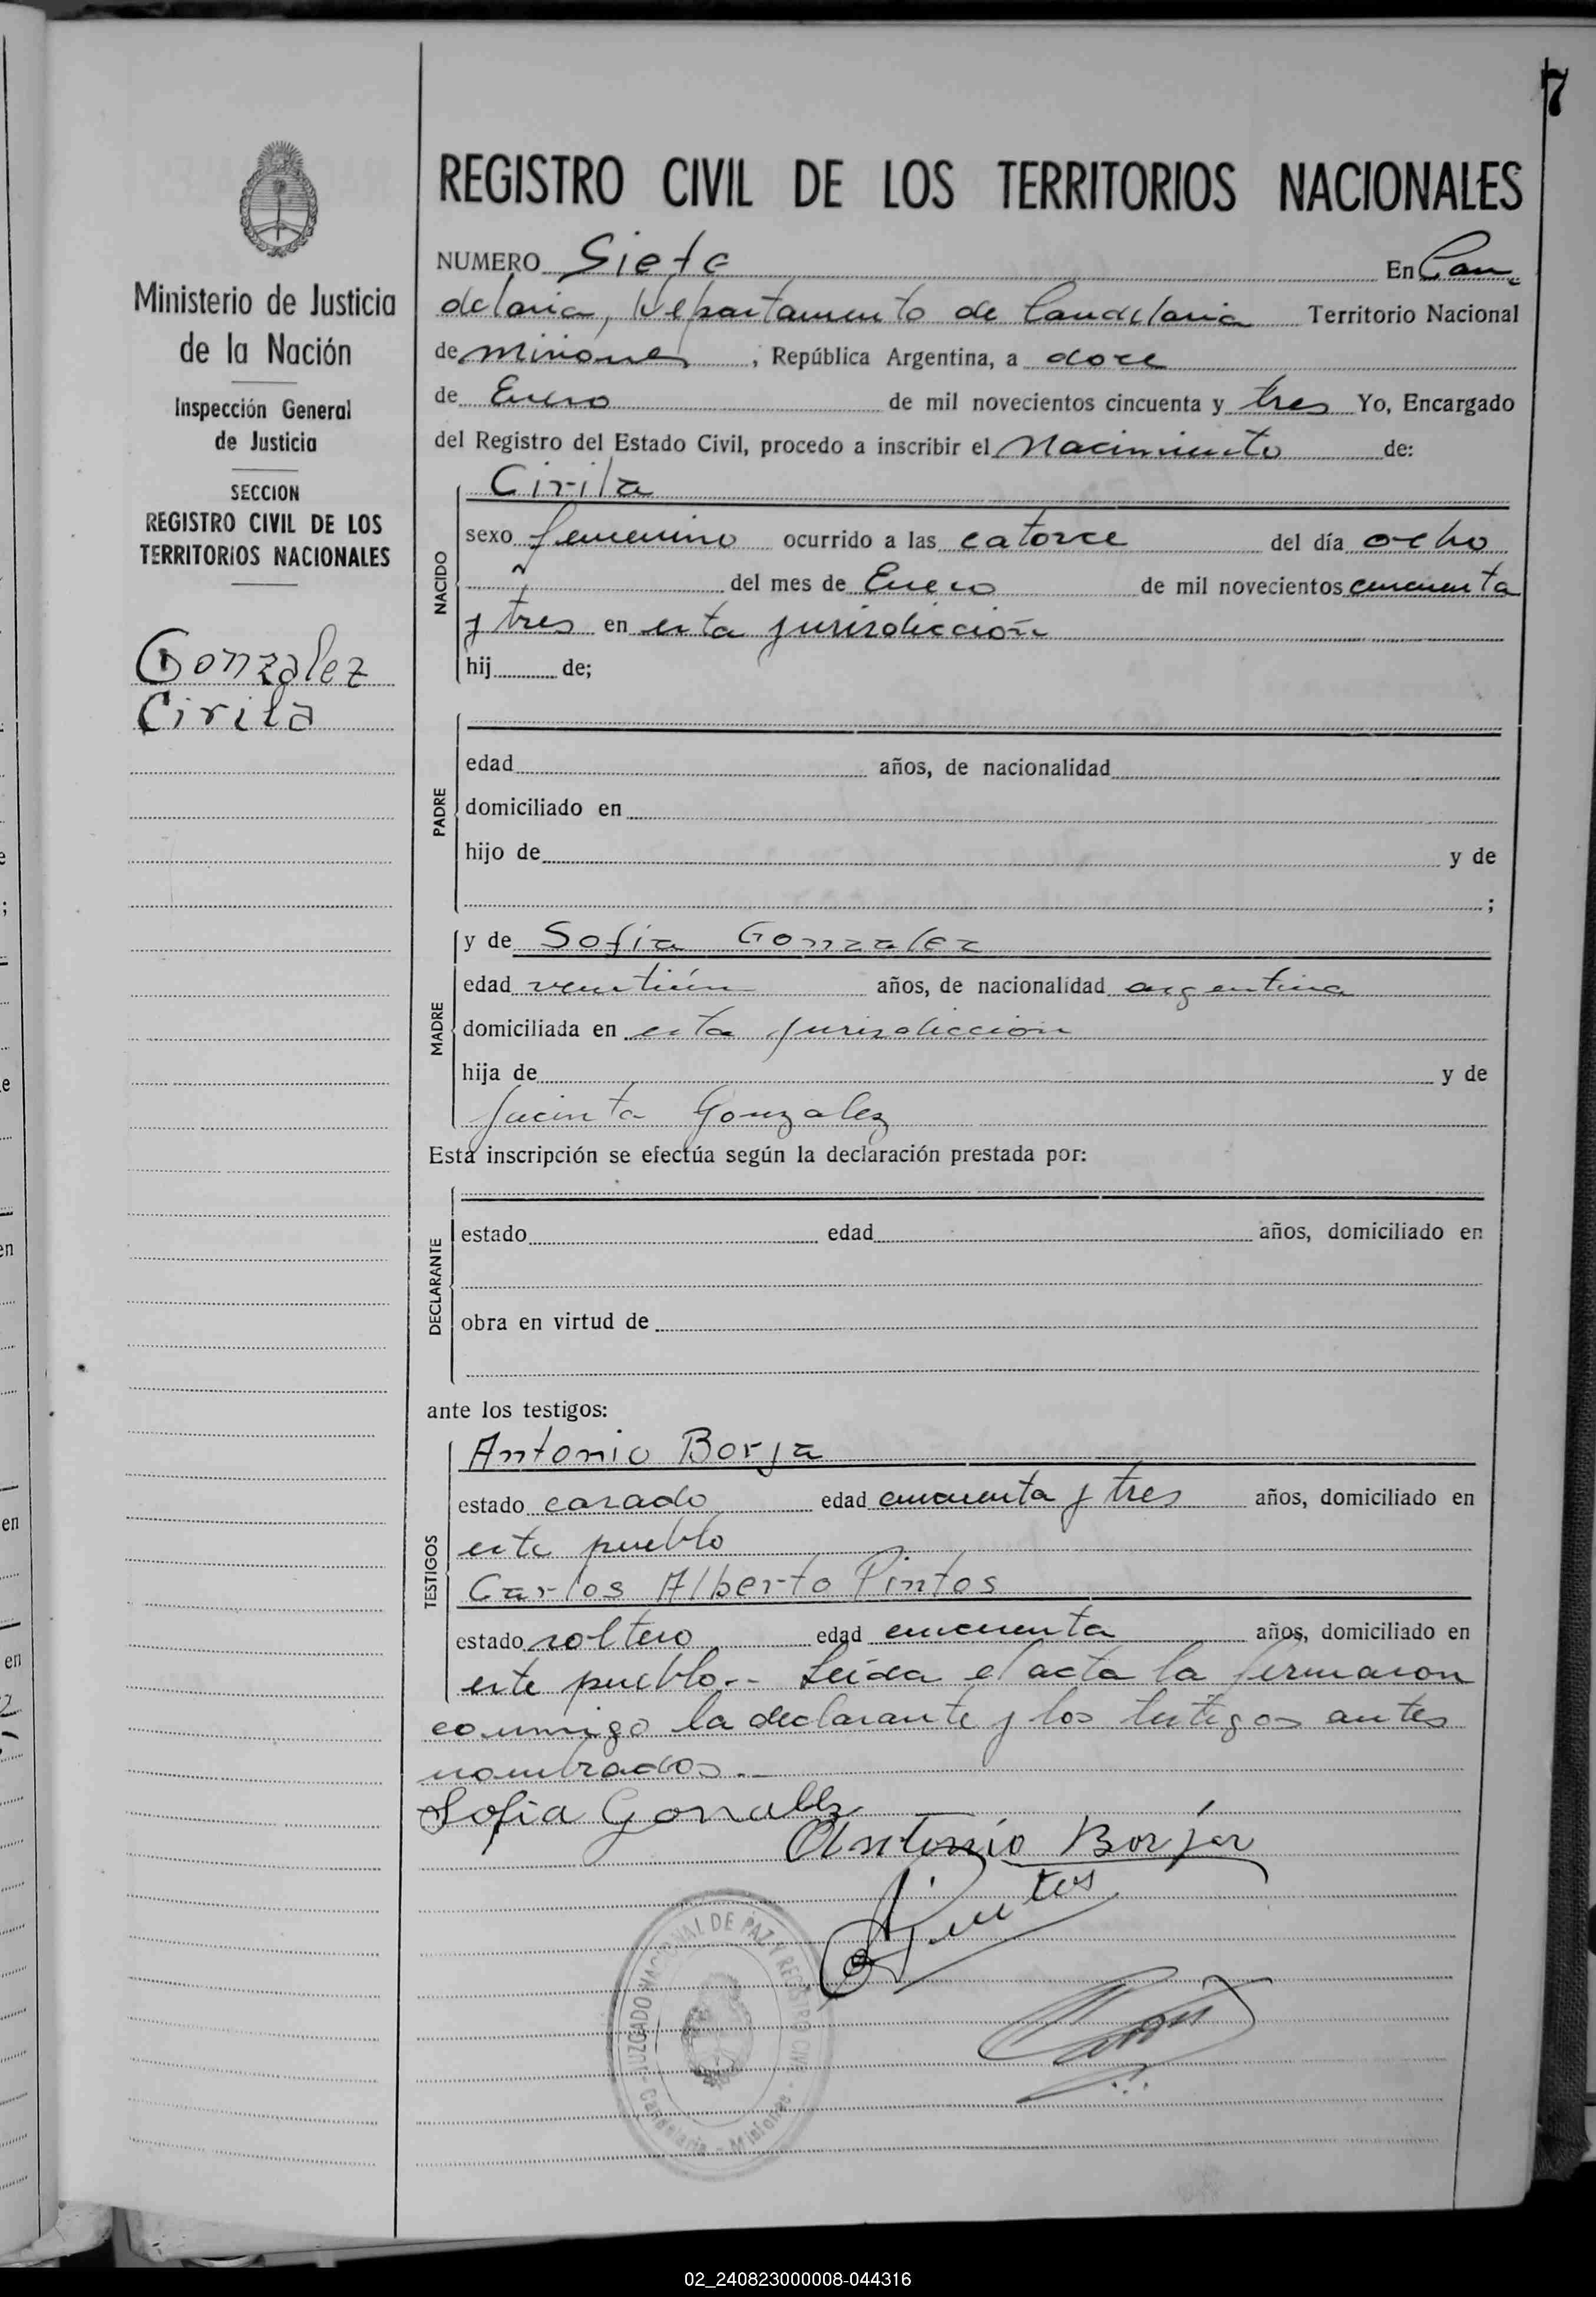 7
REGISTRO CIVIL DE LOS TERRITORIOS NACIONALES
Ministerio de Justicia
de la Nación
Inspección General
de Justicia
SECCION
REGISTRO CIVIL DE LOS
TERRITORIOS NACIONALES
Gonzalez
Cirila
NUMERO Siete En Can
delaria, Departamento de Candelaria Territorio Nacional
de Misiones, República Argentina, a doce
de Enero de mil novecientos cincuenta y tres Yo, Encargado
del Registro del Estado Civil, procedo a inscribir el Nacimiento de:
Cirila
NACIDO
sexo femenino ocurrido a las catorce del día ocho
del mes de Enero de mil novecientos cincuenta
y tres en esta jurisdicción
hij de;
PADRE
edad años, de nacionalidad
domiciliado en
hijo de y de
;
MADRE
y de Sofia Gonzalez
edad veintiún años, de nacionalidad argentina
domiciliada en esta jurisdicción
hija de y de
Jacinta Gonzalez
Esta inscripción se efectúa según la declaración prestada por:
DECLARANTE
estado edad años, domiciliado en
obra en virtud de
ante los testigos:
TESTIGOS
Antonio Borja
estado casado edad cincuenta y tres años, domiciliado en
este pueblo
Carlos Alberto Pintos
estado soltero edad cincuenta años, domiciliado en
este pueblo.- Leida el acta la firmaron
conmigo la declarante y los testigos antes
nombrados.-
Sofia Gonzalez
Antonio Borja
Pintos
JUZGADO NACIONAL DE PAZ Y REGISTRO CIVIL
- Candelaria - Misiones -
02_240823000008-044316